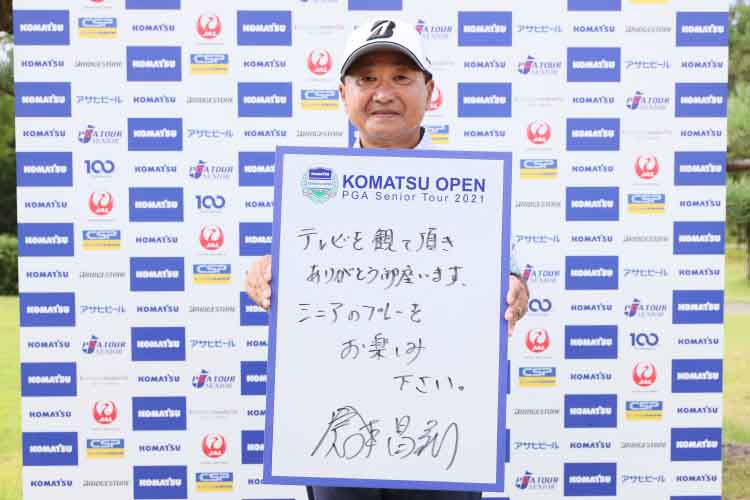 KOMATSU OPEN
PGA Senior Tour 2021
テレビを観て頂き
ありがとう御座います、
シニアのプレーを
お楽しみ
下さい。
KOMATSU
アサヒビール
BRIDGESTONE
JAL
CSP
PGA TOUR
SENIOR
100
B